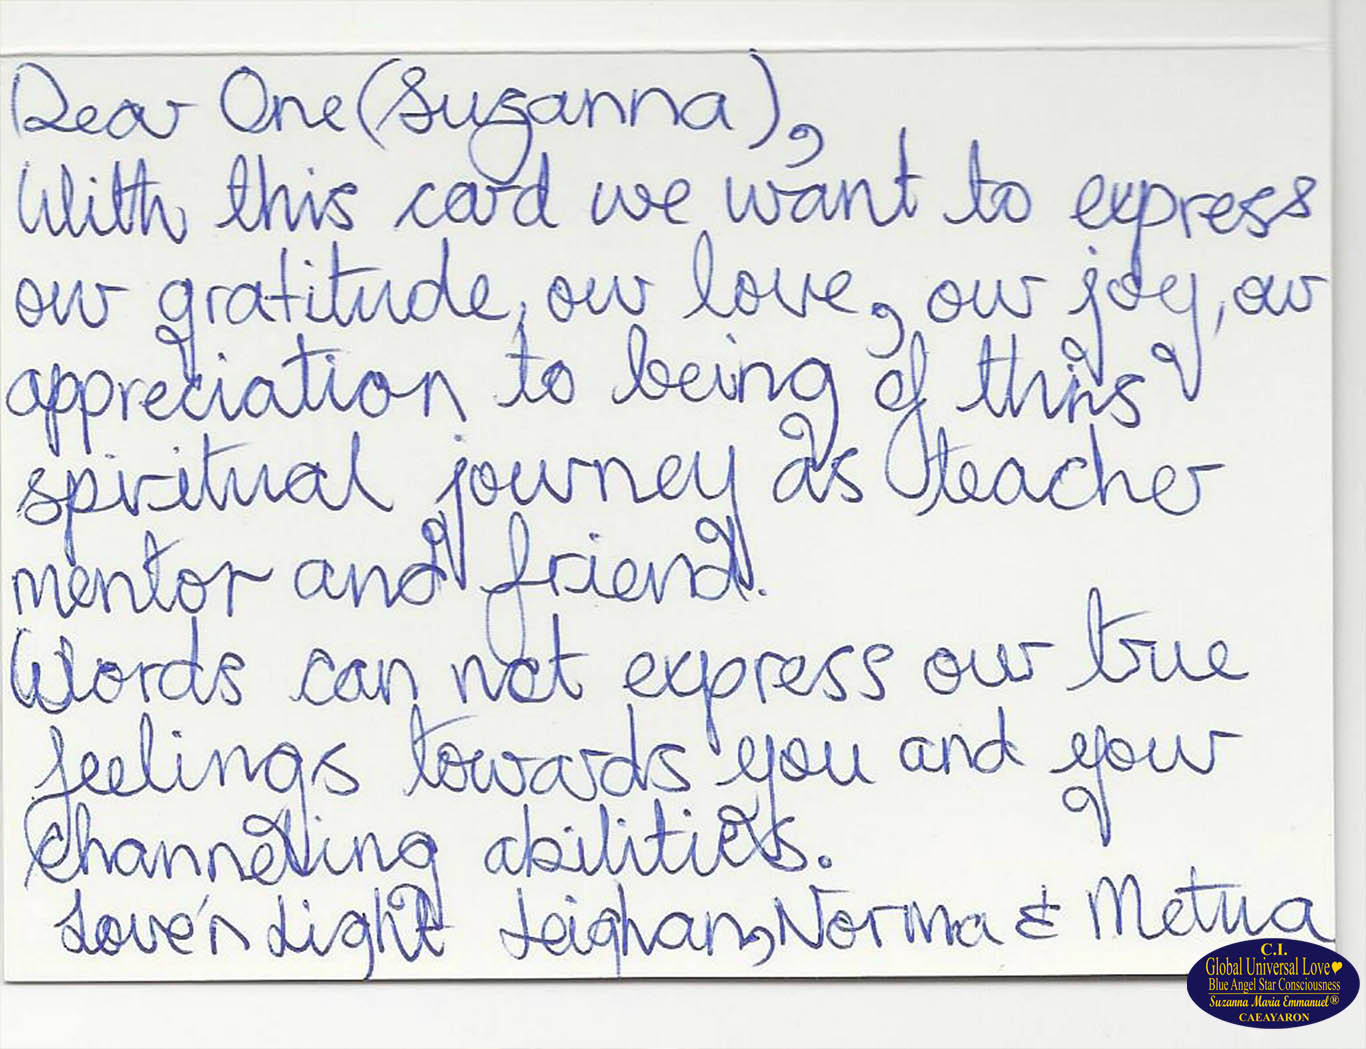 Dear One (Suzanna),
With this card we want to express
our gratitude, our love, our joy, our
appreciation to being of this
spiritual journey as teacher
mentor and friend.
Words can not express our true
feelings towards you and your
Channeling abilities.
Love 'n Light Leighan, Norma & Metua
C.I.
Global Universal Love
Blue Angel Star Consciousness
Suzanna Maria Emmanuel®
CAEAYARON